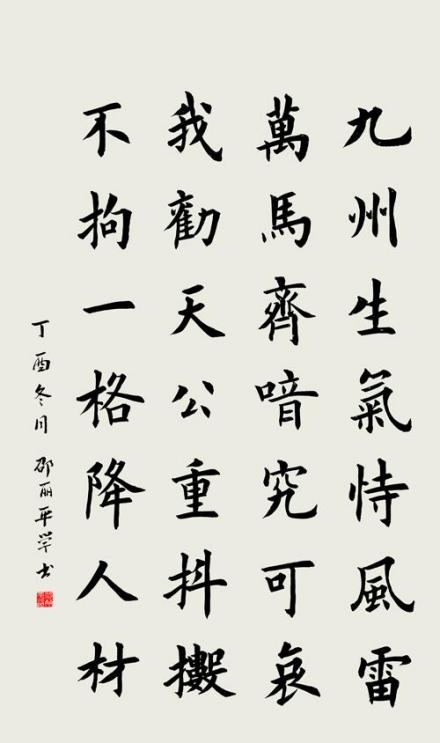 九州生氣恃風雷
萬馬齊喑究可哀
我勸天公重抖擻
不拘一格降人材
丁酉冬月 邵丽平学书